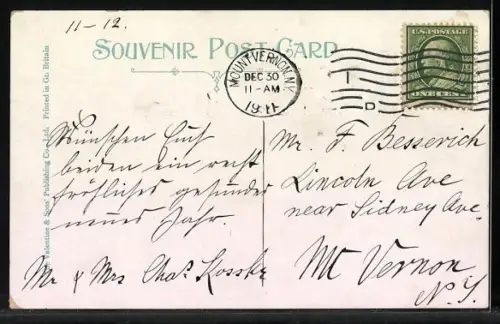 11-12.
SOUVENIR POST CARD
MOUNT VERNON, N.Y.
DEC 30
11-AM
1911
D
U.S. POSTAGE
ONE CENT
Valentine & Sons' Publishing Co., Ltd., Printed in Gt. Britain
Wünschen Euch
beiden ein recht
fröhliches gesundes
neues Jahr.
Mr & Mrs Chas.
Mr. F. Besserich
Lincoln Ave
near Sidney Ave.
Mt Vernon.
N.Y.